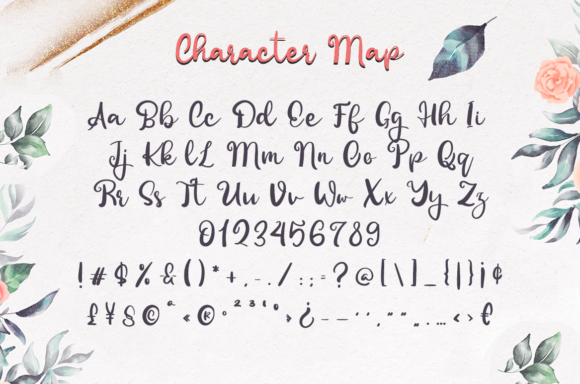 Character Map
Aa Bb Cc Dd Ee Ff Gg Hh Ii
Jj Kk Ll Mm Nn Oo Pp Qq
Rr Ss Tt Uu Vv Ww Xx Yy Zz
0123456789
! # $ % & ( ) * + , - . / : ; = ? @ [ \ ] _ { | } ¡ ¢
£ ¥ § © ª « ® ° ² ³ ¹ º » ¿ – — ‘ ’ ‚ “ ” „ . … ‹ › €